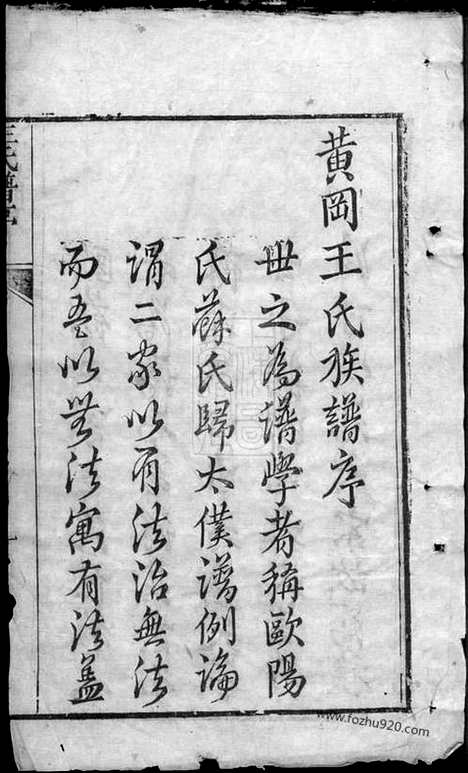 黃岡王氏族譜序
世之為譜學者稱歐陽
氏蘇氏歸太僕譜例論
謂二家以有法治無法
而吾以無法寓有法蓋
www.fozhu920.com